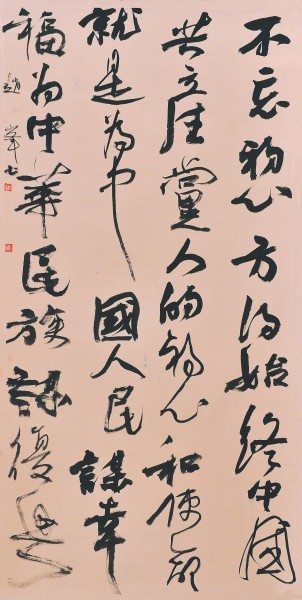 不忘初心方得始終中國
共產黨人的初心和使命
就是為中國人民謀幸
福為中華民族謀復興
趙